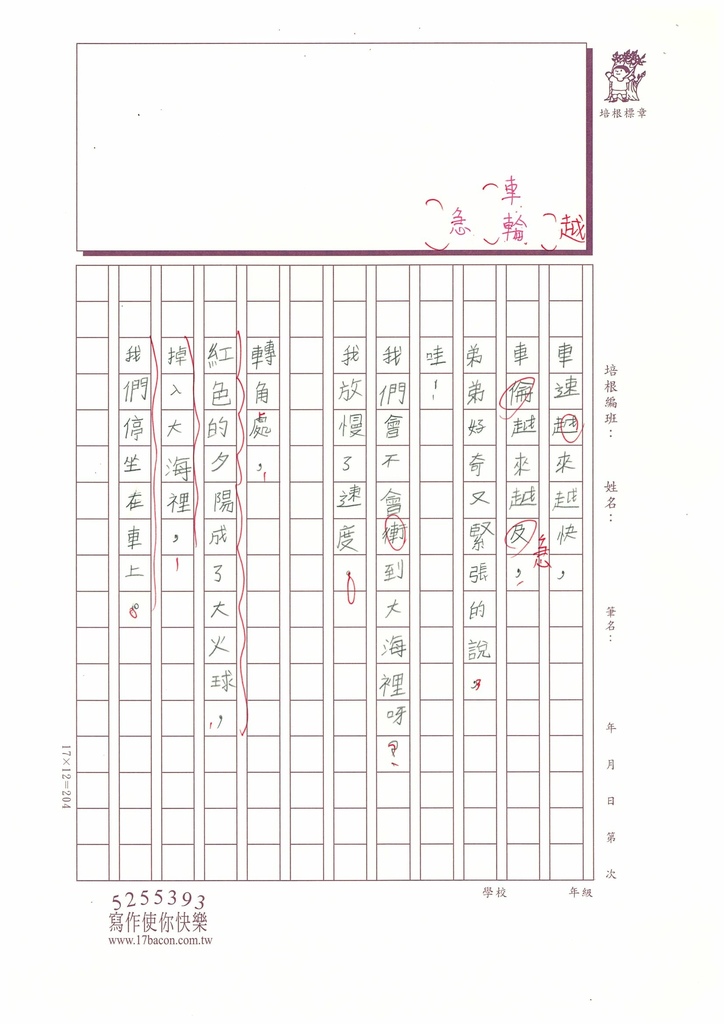 培根標章
越
車輪
急
培根編班：　姓名：　筆名：　年　月　日　第　次
車速越來越快，
車倫越來越及，
急
弟弟好奇又緊張的說，
哇！
我們會不會衝到大海裡呀？
我放慢了速度。
轉角處，
紅色的夕陽成了大火球，
掉入大海裡，
我們停坐在車上。
17×12=204
學校　年級
5255393
寫作使你快樂
www.17bacon.com.tw